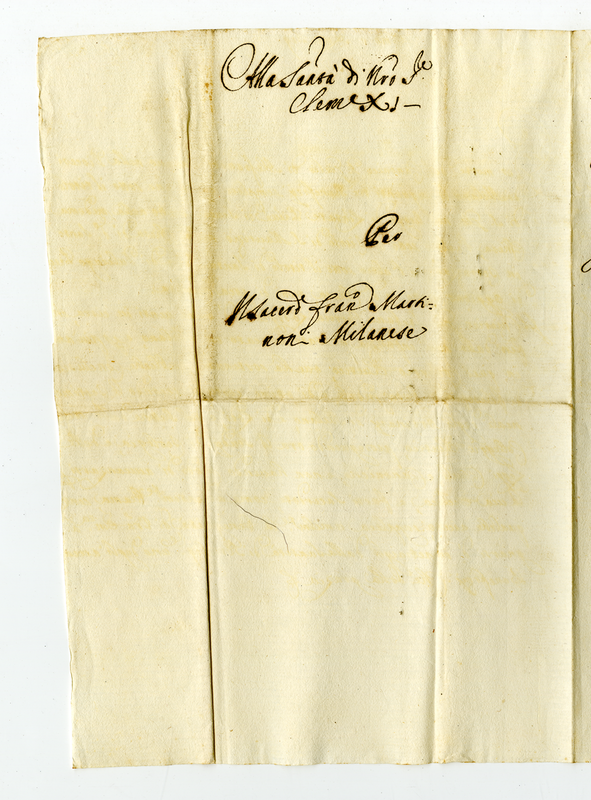 Alla Santà di Nro Sre
Clemte XI
Per
Il Sacerd Frano Marti=
noni Milanese